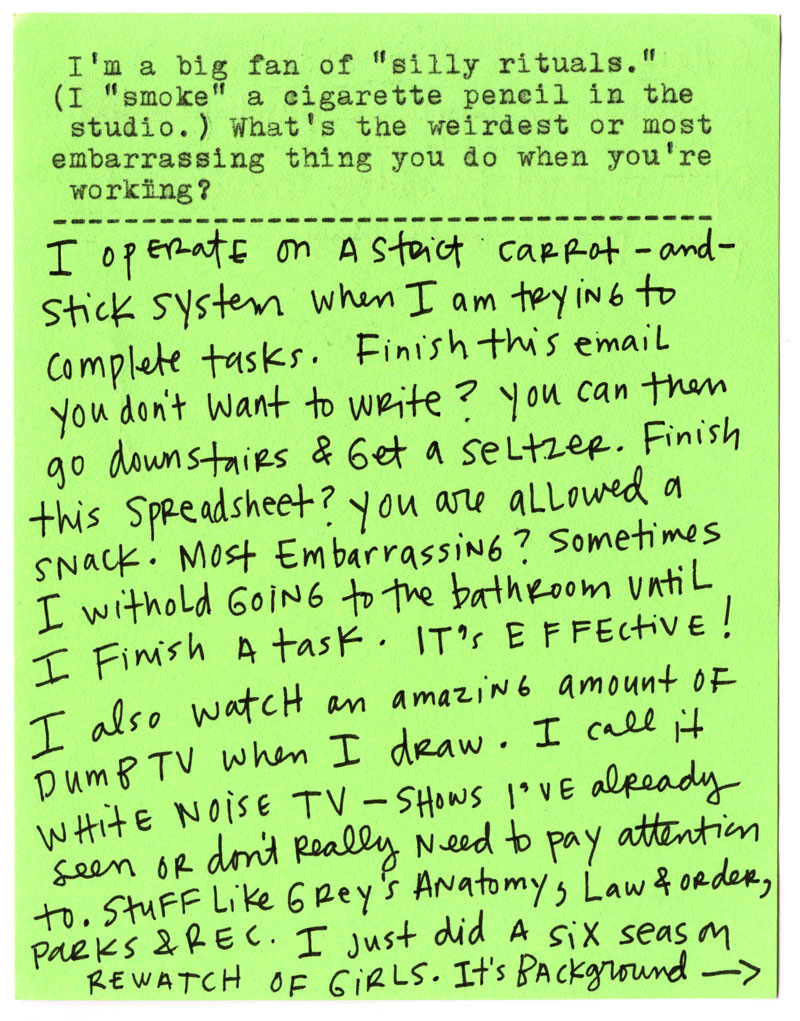 I'm a big fan of "silly rituals."
(I "smoke" a cigarette pencil in the
studio.) What's the weirdest or most
embarrassing thing you do when you're
working?
I OPERATE ON A StRICT CARROT -and-
Stick System when I am tRYING to
Complete tasks. Finish this email
you don't want to WRite? you can then
go downstairs & Get a SeLtzer. Finish
this Spreadsheet? you are aLLowed a
SNack. Most Embarrassing? Sometimes
I withold GOiNG to the bathroom until
I Finish A task. IT's EFFEctiVE!
I also watch an amazing amount of
Dumb TV when I draw. I call it
WHitE NOiSE TV - SHOWS I'VE already
Seen OR don't Really Need to pay attention
to. StuFF Like GRey's ANAtomy, Law & order,
PaRKS & REC. I Just did A six season
REWATCH OF GiRLS. It's BACKground →